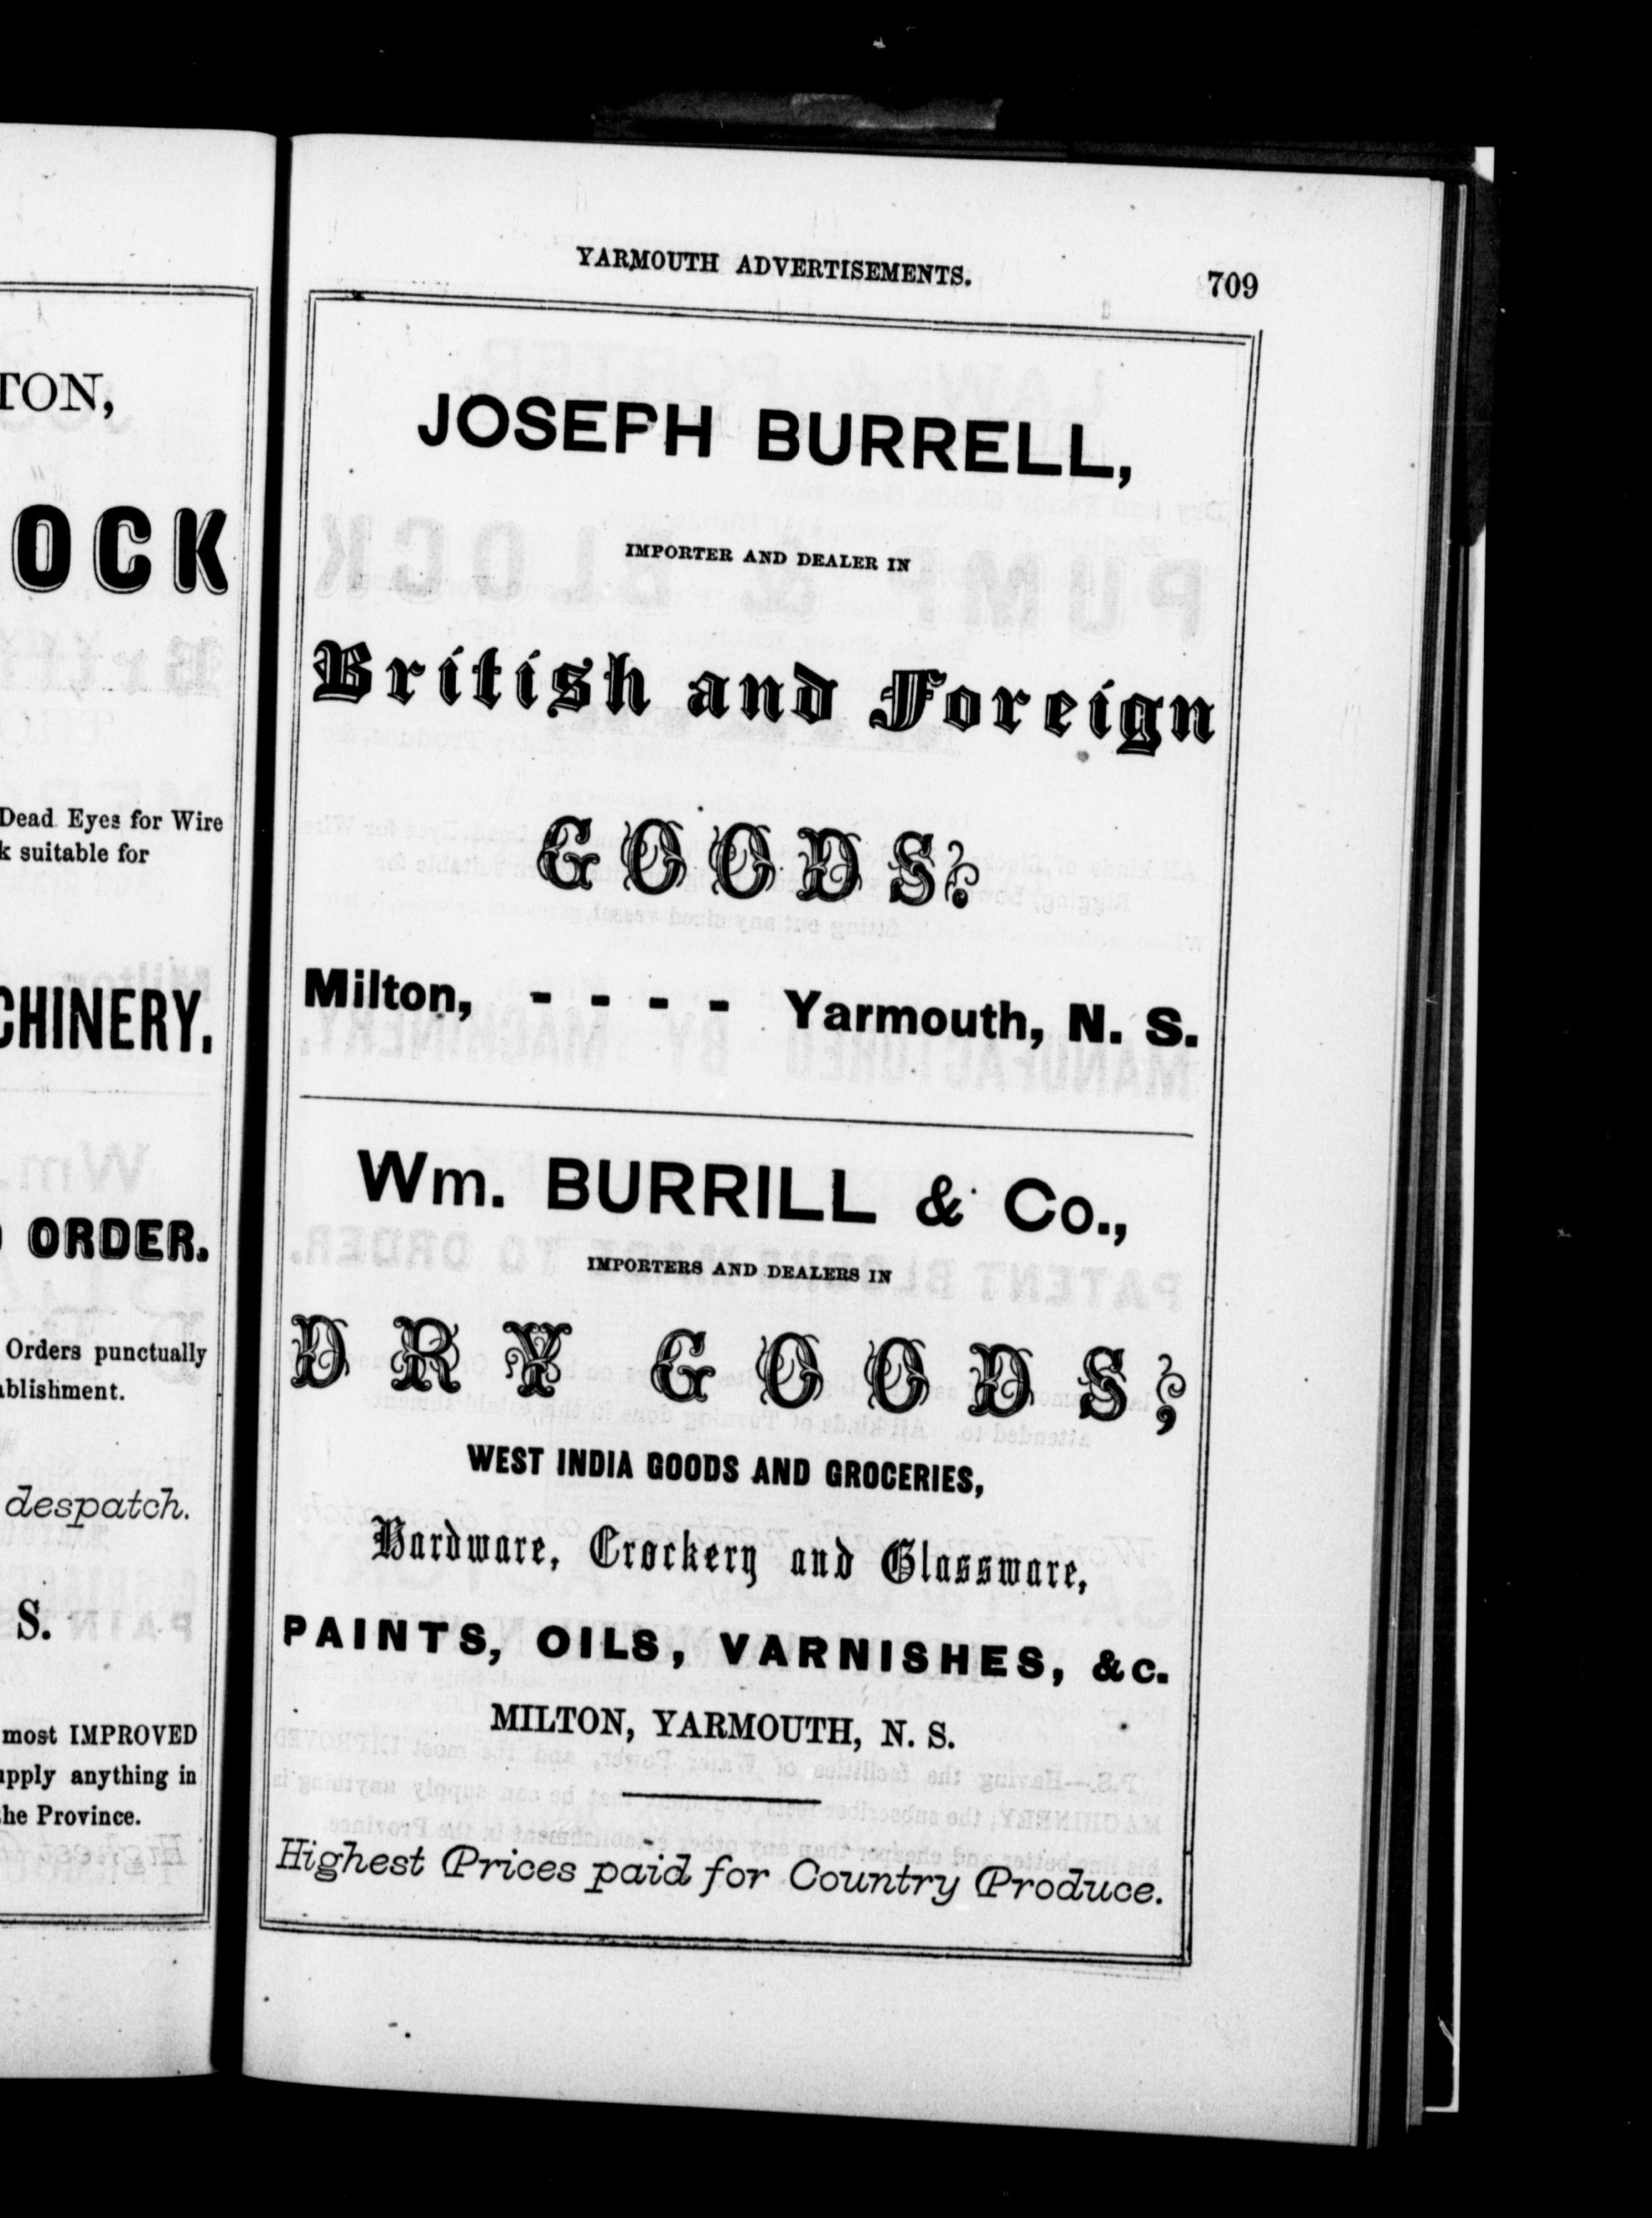 TON,
OCK
Dead Eyes for Wire
k suitable for
CHINERY.
ORDER.
Orders punctually
ablishment.
despatch.
S.
most IMPROVED
upply anything in
the Province.
YARMOUTH ADVERTISEMENTS. 709
JOSEPH BURRELL,
IMPORTER AND DEALER IN
British and Foreign
GOODS.
Milton, - - - - Yarmouth, N. S.
Wm. BURRILL & Co.,
IMPORTERS AND DEALERS IN
DRY GOODS,
WEST INDIA GOODS AND GROCERIES,
Hardware, Crockery and Glassware,
PAINTS, OILS, VARNISHES, &c.
MILTON, YARMOUTH, N. S.
Highest Prices paid for Country Produce.